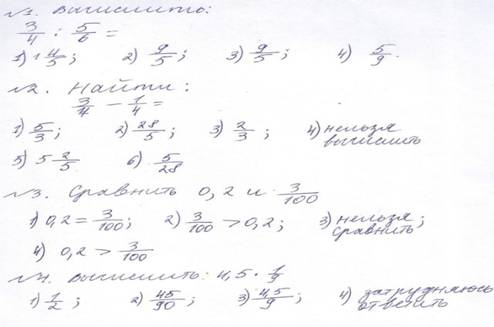 №1. Вычислить:
3/4 : 5/6 =
1) 1 4/5; 2) 9/5; 3) 9/5; 4) 5/9.
№2. Найти:
3/4 - 1/4 =
1) 5/3; 2) 28/5; 3) 2/3; 4) нельзя вычислить
5) 5 2/5 6) 5/28
№3. Сравнить 0,2 и 3/100
1) 0,2 = 3/100; 2) 3/100 > 0,2; 3) нельзя сравнить;
4) 0,2 > 3/100
№4. Вычислить: 4,5 · 1/9
1) 1/2; 2) 45/90; 3) 4,5/9; 4) затрудняюсь ответить